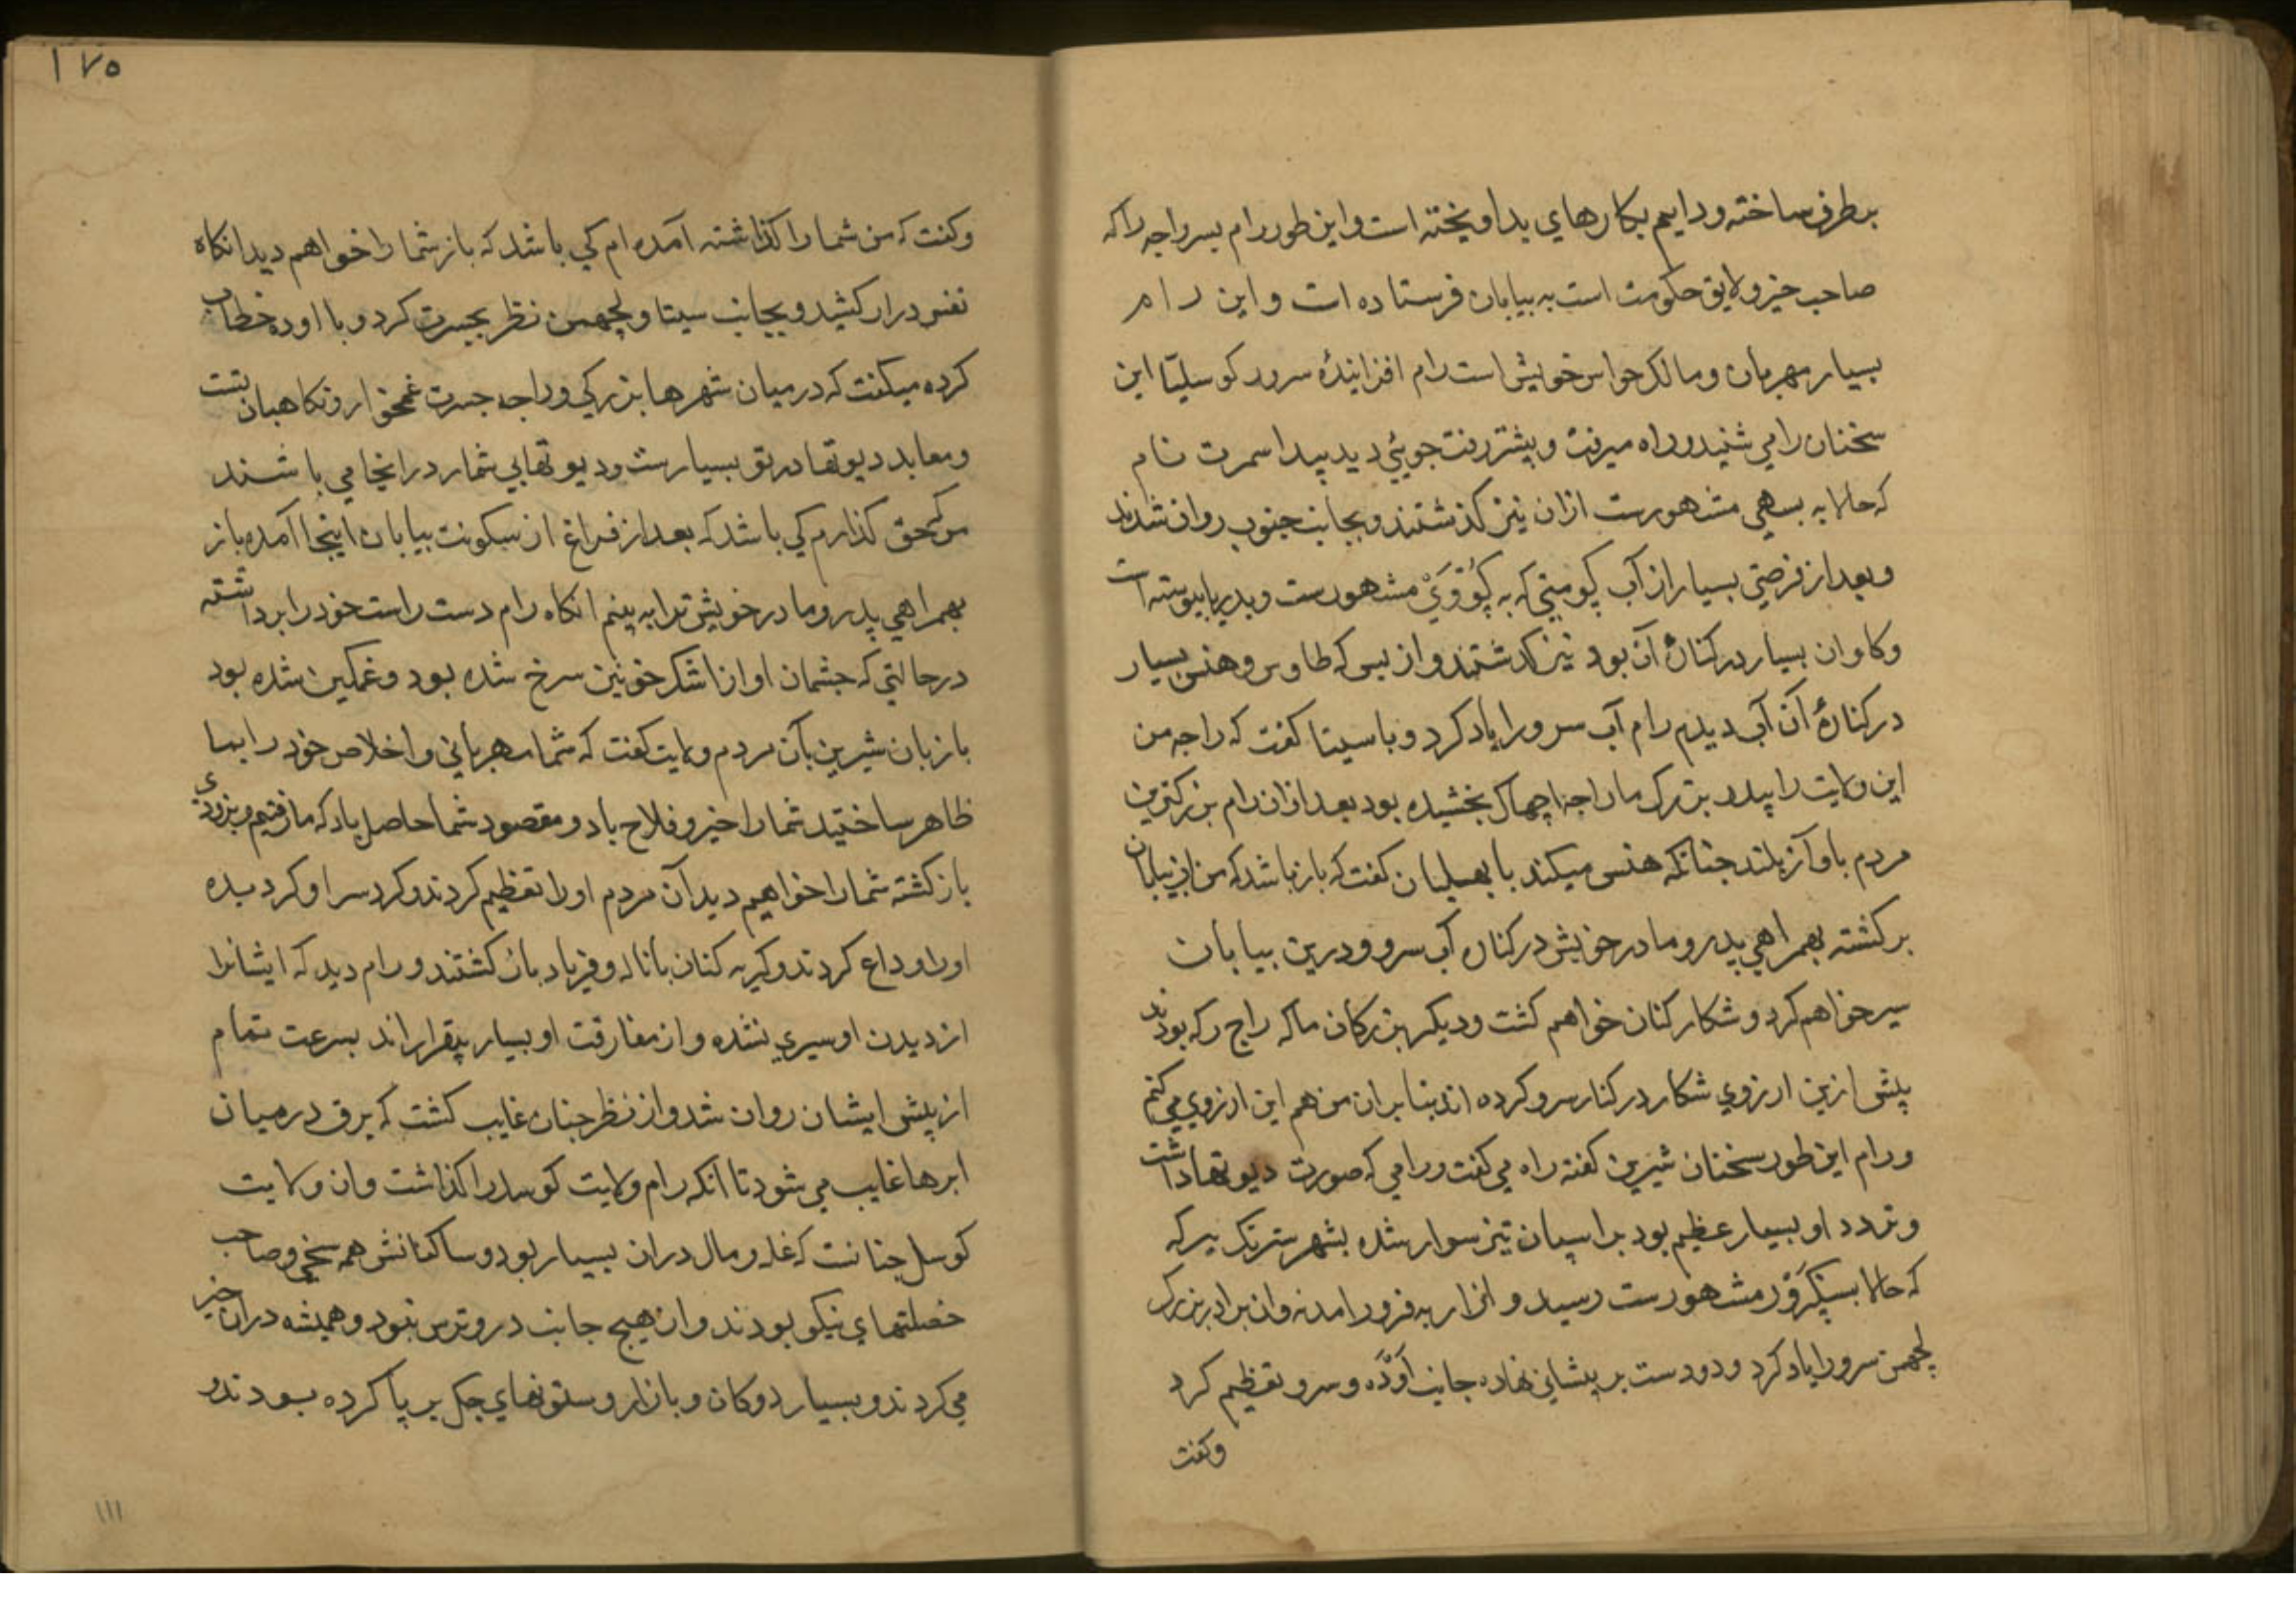 برطرف ساخته ودایم بکارهای بد اویخته است واین طور رام پسر راجه را که
صاحب خیر ولایق حکومت است به بیابان فرستاده است واین رام
بسیار مهربان ومالک حواس خویش است رام افزاینده سرور کوسلیّا این
سخنان را می شنید وراه میرفت وپیشتر رفت جویئی دید بیداسمرت نام
که حالا به بسهی مشهورست ازان نیز کذشتند وبجانب جنوب روان شدند
وبعد از فرصتی بسیار از آب کومتی که به کُوُدَیْ مشهورست وبدریا پیوسته است
وکاوان بسیار در کنارهٔ آن بود نیز کذشتند واز بس که طاوس وهنس بسیار
در کنارهٔ آن آب دیدم رام آب سرو را یاد کرد وبا سیتا کفت که راجه من
این ولایت را پدر بزرک ما راجه اچهاک بخشیده بود بعد ازان رام بزرکترین
مردم باواز بلند چنانکه هنس میکند با بهیلیان کفت که باز باشد که من ازین بیابان
برکشته بهمراهی پدر ومادر خویش در کنار آب سرو ودرین بیابان
سیر خواهم کرد وشکار کنان خواهم کشت ودیکر بزرکان ما که راج رکه بودند
پیش ازین ارزوی شکار در کنار سرو کرده اند بنابران من هم این ارزوی می کنم
ورام این طور سخنان شیرین کفته راه می کفت ورامی که صورت دیوتها داشت
وتردد او بسیار عظیم بود بر اسپان تیز سوار شده بشهر سترنک بیر که
که حالا بسنکرَوْر مشهورست رسید و از ارابه فرود امدند وان برادر بزرک
لچهمن سرو را یاد کرد ودو دست بر پیشانی نهاده جانب اَوَدّه وسرو تعظیم کرد
وکفت
۱۷۵
وکفت که من شما را کذاشته آمده ام کی باشد که باز شما را خواهم دید انکاه
نفس دراز کشید وبجانب سیتا ولچهمن نظر بحسرت کرد وبا اوده خطاب
کرده میکفت که در میان شهرها بزرکی وراجه جسرت غمخوار ونکاهبان تست
ومعابد دیوتها در تو بسیارست ودیوتها بی شمار در اینجا می باشند
من کی حق کذارم کی باشد که بعد از فراغ از سکونت بیابان اینجا آمده باز
بهمراهی پدر ومادر خویش ترا به بینم انکاه رام دست راست خود را برداشته
در حالتی که چشمان او از اشک خونین سرخ شده بود وغمکین شده بود
بازبان شیرین بآن مردم ولایت کفت که شما مهربانی واخلاص خود را بما
ظاهر ساختید شما را خیر وفلاح باد ومقصود شما حاصل باد که ما رفتیم وبزودی
باز کشته شما را خواهیم دید آن مردم او را تعظیم کردند وکرد سر او کردیده
او را وداع کردند وکریه کنان با ناله وفریاد باز کشتند ورام دید که ایشانرا
از دیدن او سیری نشده واز مفارقت او بسیار بیقرار اند بسرعت تمام
از پیش ایشان روان شد واز نظر چنان غایب کشت که برق در میان
ابرها غایب می شود تا انکه رام ولایت کوسل را کذاشت وان ولایت
کوسل چنانست که غله ومال دران بسیار بود وساکنانش همه سخی وصاحب
خصلتهای نیکو بودند وازهیچ جانب درو ترس نبود وهمیشه دران خیر
می کردند وبسیار دوکان وبازار وستونهای جک بر پا کرده بودند و
۱۱۱